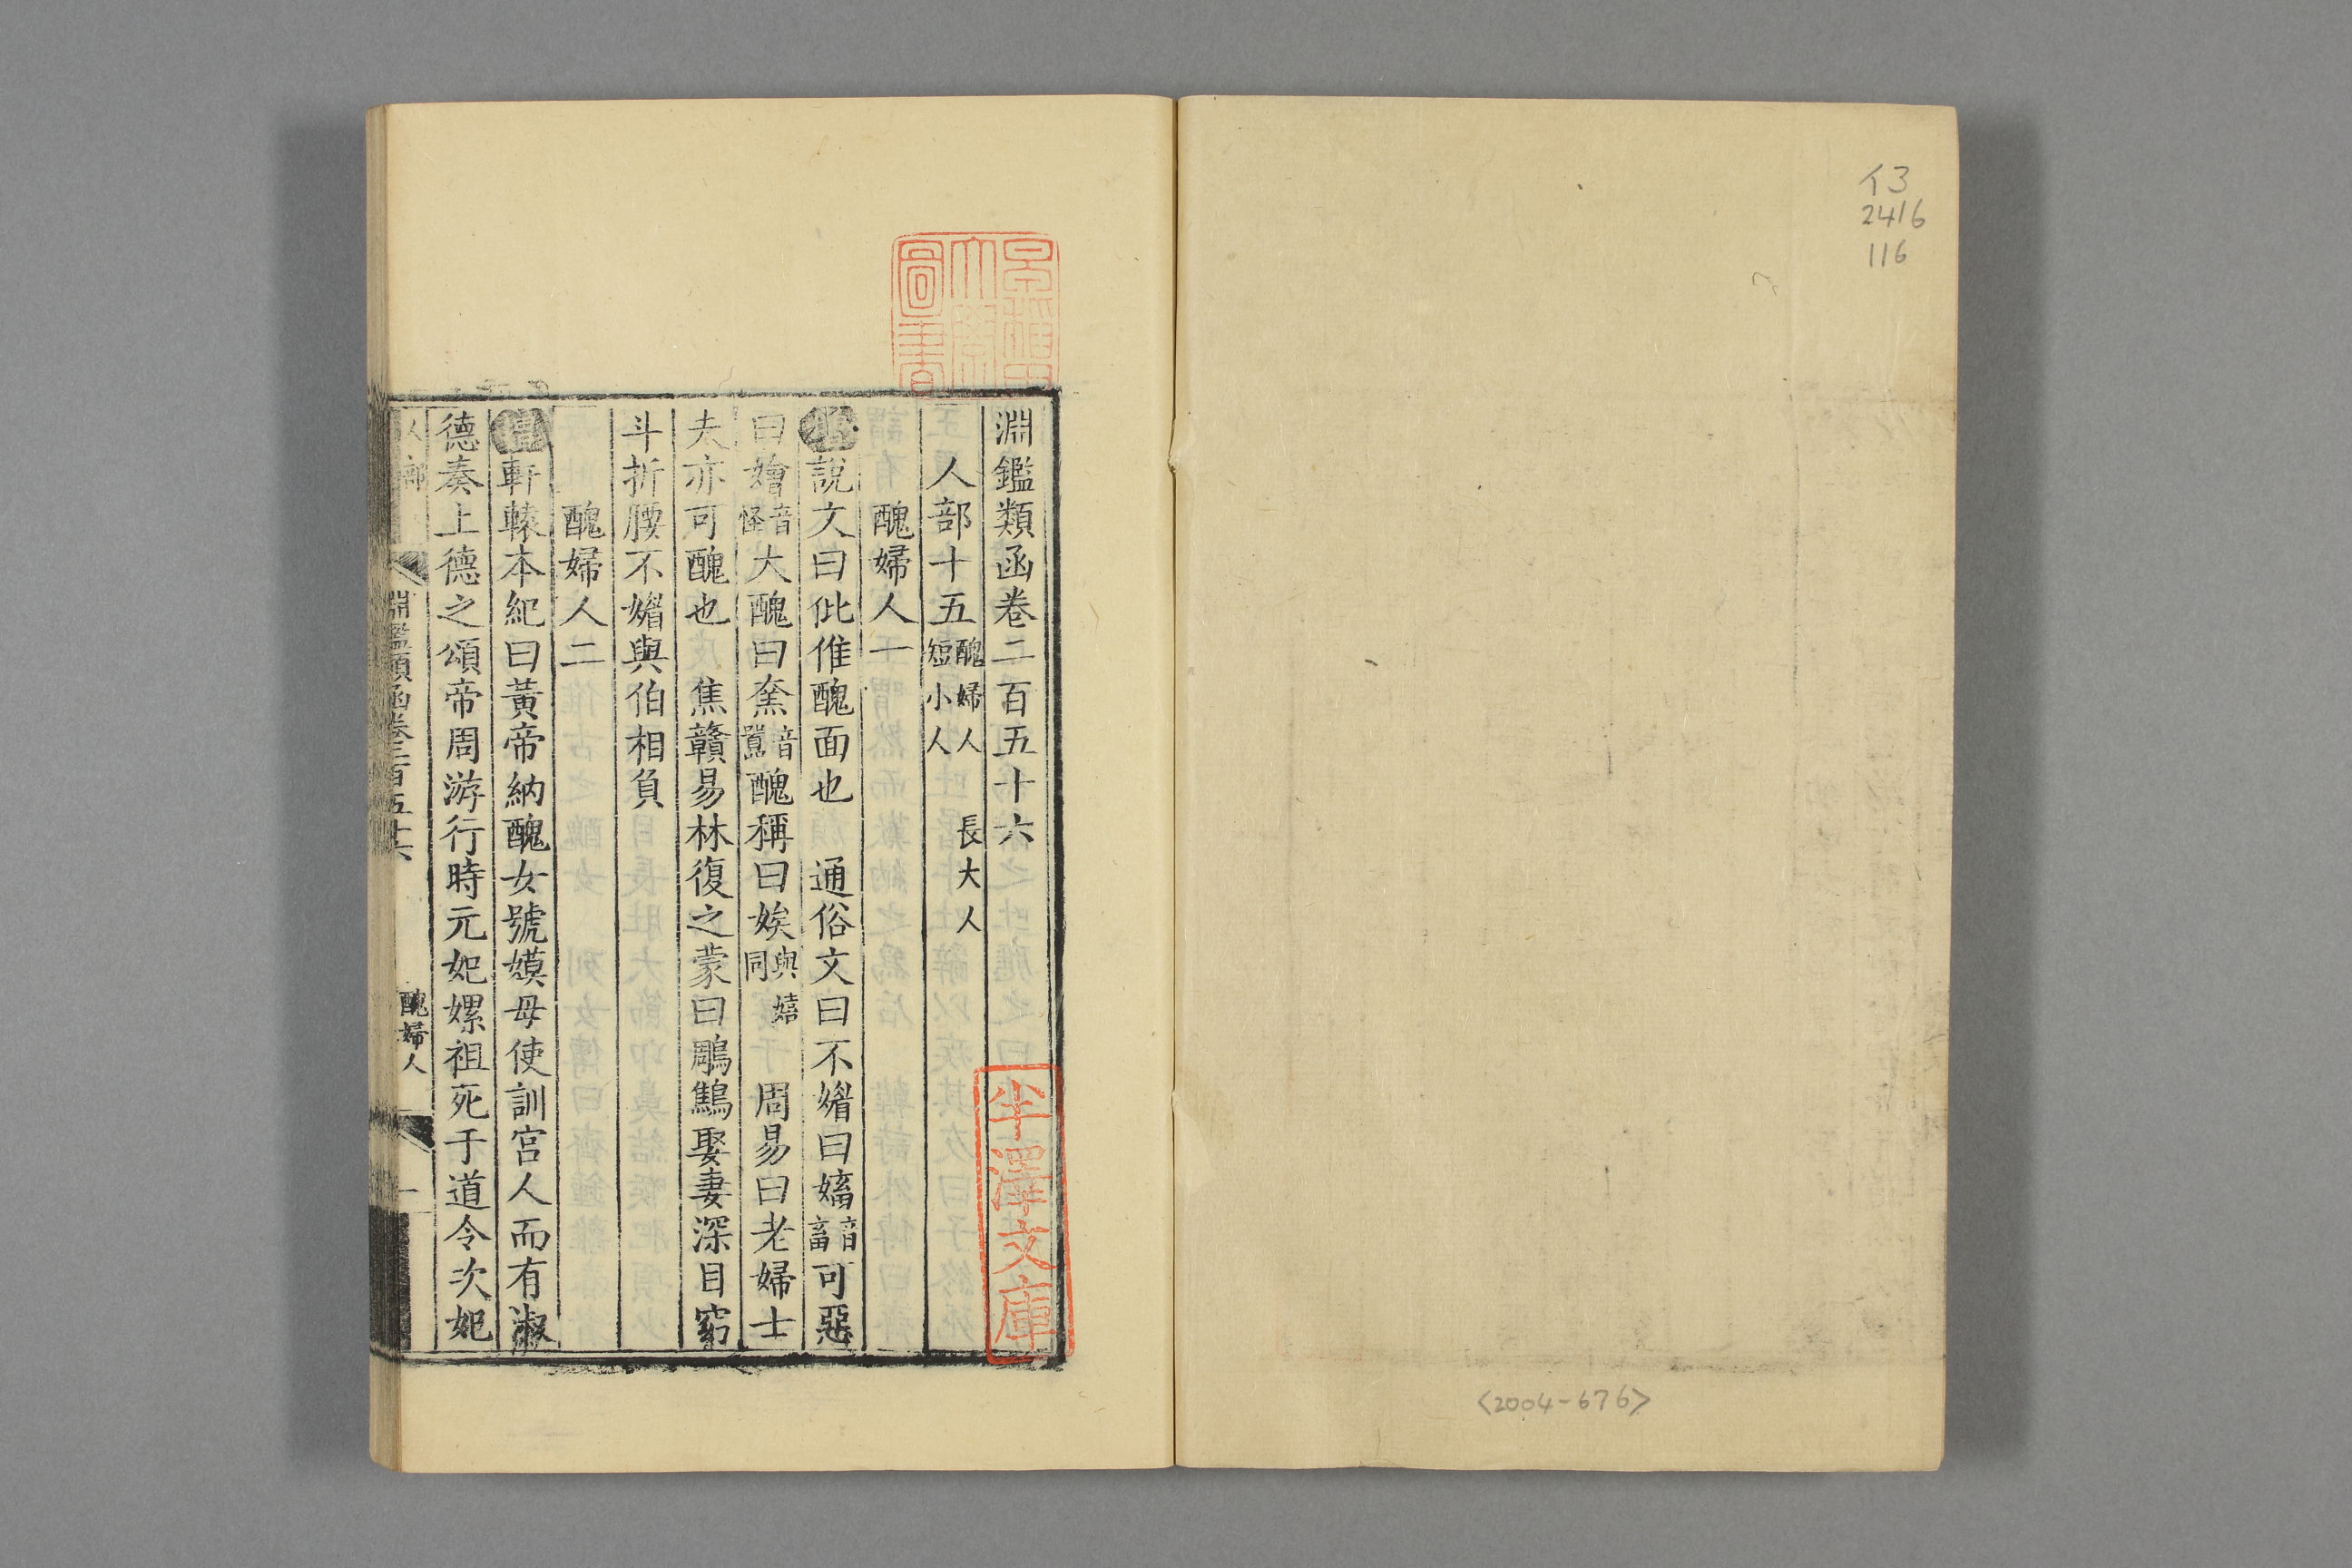 イ3
2416
116
<2004-676>
淵鑑類函卷二百五十六
人部十五醜婦人 長大人
短小人
醜婦人一
說文曰仳倠醜面也 通俗文曰不媚曰嬌音畜可惡
曰嬒音怪大醜曰奯音醜稱曰娭與嬉同 周易曰老婦士
夫亦可醜也 焦贛易林復之蒙曰鵰鷦娶妻深目窮
斗折腰不媚與伯相負
醜婦人二
增軒轅本紀曰黃帝納醜女號嫫母使訓宮人而有淑
德奏上德之頌帝周游行時元妃嫘祖死于道令次妃
人部
淵鑑類函卷二百五十六
醜婦人
一
半澤文庫
圖書